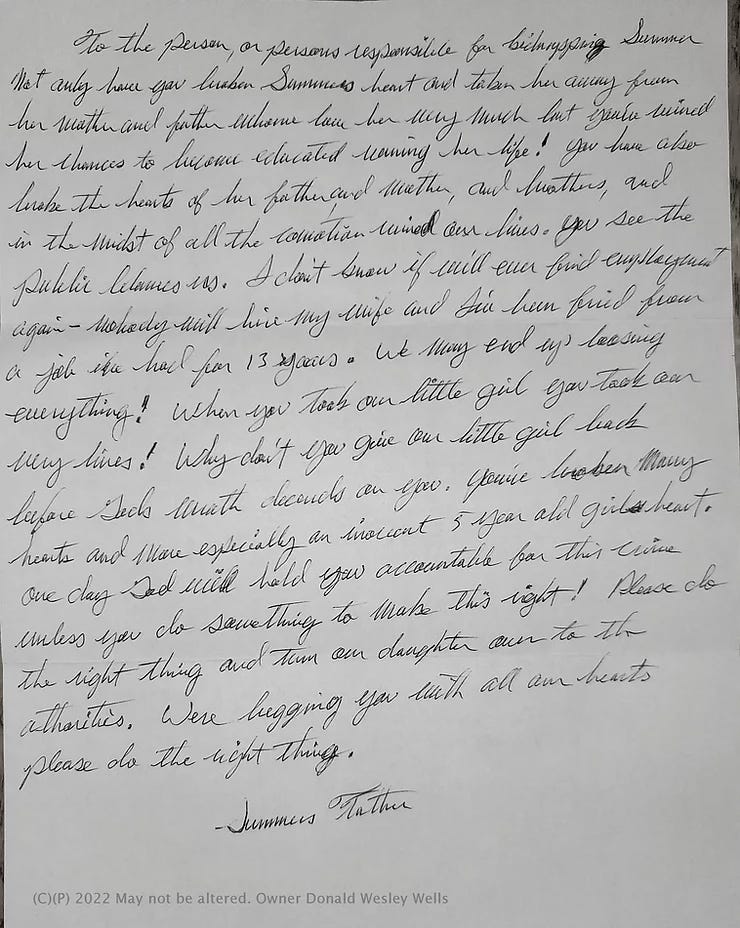 To the person, or persons responsible for kidnapping Summer
Not only have you broken Summers heart and taken her away from
her mother and father whome love her very much but you've ruined
her chances to become educated ruining her life! You have also
broke the hearts of her father and mother, and brothers, and
in the midst of all the comotion ruined our lives. You see the
public blames us. I don't know if will ever find employment
again - nobody will hire my wife and I've been fried from
a job ive had for 13 years. We may end up loosing
everything! When you took our little girl you took our
very lives! Why don't you give our little girl back
before Gods wrath decends on you. You've broken many
hearts and more especially an inocent 5 year old girls heart.
One day God will hold you accountable for this crime
unless you do something to make this right! Please do
the right thing and turn our daughter over to the
athorities. Were begging you with all our hearts
please do the right thing.
-Summers Father
(C)(P) 2022 May not be altered. Owner Donald Wesley Wells